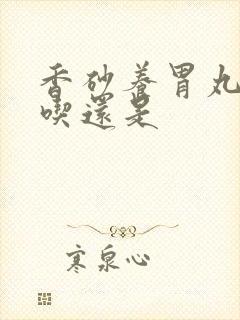 香砂養胃丸
喫還是
寒泉心